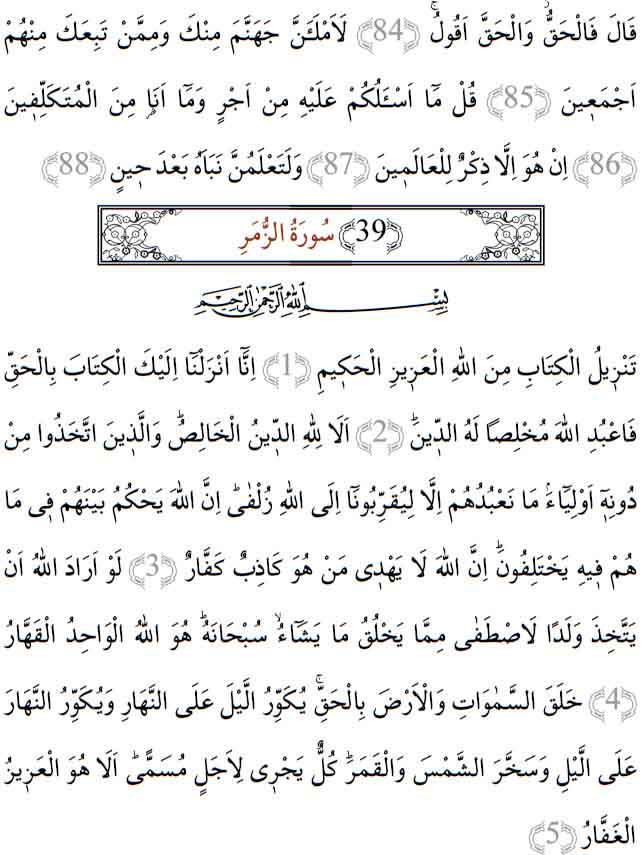 قَالَ فَالْحَقُّۘ وَالْحَقَّ اَقُولُۚ ﴿84﴾ لَاَمْلَـَٔنَّ جَهَنَّمَ مِنْكَ وَمِمَّنْ تَبِعَكَ مِنْهُمْ
اَجْمَع۪ينَ ﴿85﴾ قُلْ مَٓا اَسْـَٔلُكُمْ عَلَيْهِ مِنْ اَجْرٍ وَمَٓا اَنَا۬ مِنَ الْمُتَكَلِّف۪ينَ
﴿86﴾ اِنْ هُوَ اِلَّا ذِكْرٌ لِلْعَالَم۪ينَ ﴿87﴾ وَلَتَعْلَمُنَّ نَبَاَهُ بَعْدَ ح۪ينٍ ﴿88﴾
﴿39﴾ سُورَةُ الزُّمَرِ
بِسْمِ اللّٰهِ الرَّحْمٰنِ الرَّح۪يمِ
تَنْز۪يلُ الْكِتَابِ مِنَ اللّٰهِ الْعَز۪يزِ الْحَك۪يمِ ﴿1﴾ اِنَّٓا اَنْزَلْنَٓا اِلَيْكَ الْكِتَابَ بِالْحَقِّ
فَاعْبُدِ اللّٰهَ مُخْلِصًا لَهُ الدّ۪ينَۜ ﴿2﴾ اَلَا لِلّٰهِ الدّ۪ينُ الْخَالِصُۜ وَالَّذ۪ينَ اتَّخَذُوا مِنْ
دُونِه۪ٓ اَوْلِيَٓاءَۢ مَا نَعْبُدُهُمْ اِلَّا لِيُقَرِّبُونَٓا اِلَى اللّٰهِ زُلْفٰىۜ اِنَّ اللّٰهَ يَحْكُمُ بَيْنَهُمْ ف۪ي مَا
هُمْ ف۪يهِ يَخْتَلِفُونَۜ اِنَّ اللّٰهَ لَا يَهْد۪ي مَنْ هُوَ كَاذِبٌ كَفَّارٌ ﴿3﴾ لَوْ اَرَادَ اللّٰهُ اَنْ
يَتَّخِذَ وَلَدًا لَاصْطَفٰى مِمَّا يَخْلُقُ مَا يَشَٓاءُۙ سُبْحَانَهُۜ هُوَ اللّٰهُ الْوَاحِدُ الْقَهَّارُ
﴿4﴾ خَلَقَ السَّمٰوَاتِ وَالْاَرْضَ بِالْحَقِّۚ يُكَوِّرُ الَّيْلَ عَلَى النَّهَارِ وَيُكَوِّرُ النَّهَارَ
عَلَى الَّيْلِ وَسَخَّرَ الشَّمْسَ وَالْقَمَرَۜ كُلٌّ يَجْر۪ي لِاَجَلٍ مُسَمًّىۜ اَلَا هُوَ الْعَز۪يزُ
الْغَفَّارُ ﴿5﴾